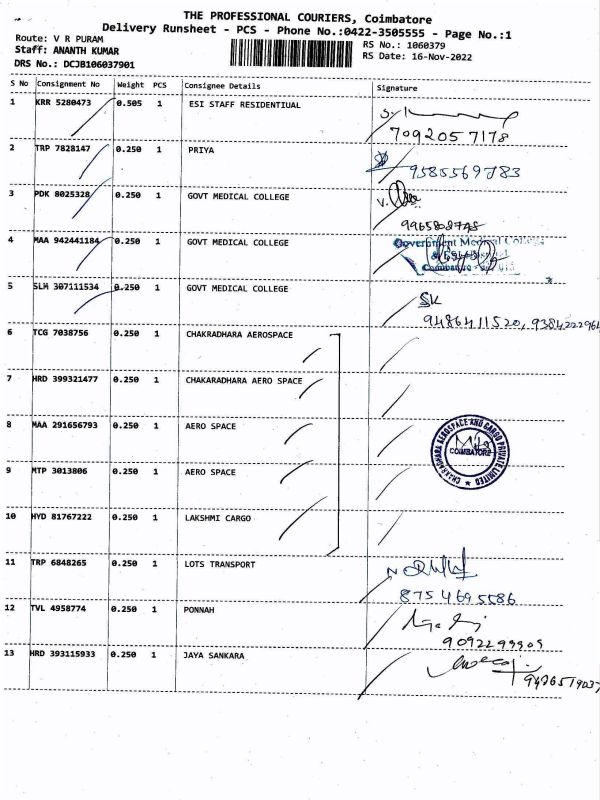 THE PROFESSIONAL COURIERS, Coimbatore
Delivery Runsheet - PCS - Phone No.:0422-3505555 - Page No.:1
Route: V R PURAM
RS No.: 1060379
Staff: ANANTH KUMAR
RS Date: 16-Nov-2022
DRS No.: DCJB106037901
S No Consignment No Weight PCS Consignee Details Signature
1 KRR 5280473 0.505 1 ESI STAFF RESIDENTIUAL
7092057178
2 TRP 7828147 0.250 1 PRIYA
9585569783
3 PDK 8025328 0.250 1 GOVT MEDICAL COLLEGE
4 MAA 942441184 0.250 1 GOVT MEDICAL COLLEGE
Government Medical College
5 SLM 307111534 0.250 1 GOVT MEDICAL COLLEGE
SK
9486411520, 9384222964
6 TCG 7038756 0.250 1 CHAKRADHARA AEROSPACE
7 HRD 399321477 0.250 1 CHAKARADHARA AERO SPACE
8 MAA 291656793 0.250 1 AERO SPACE
CHAKRADHARA AEROSPACE AND CARGO PRIVATE LIMITED
COIMBATORE
9 MTP 3013806 0.250 1 AERO SPACE
10 HYD 81767222 0.250 1 LAKSHMI CARGO
11 TRP 6848265 0.250 1 LOTS TRANSPORT
8754695586
12 TVL 4958774 0.250 1 PONNAH
9092299909
13 HRD 393115933 0.250 1 JAYA SANKARA